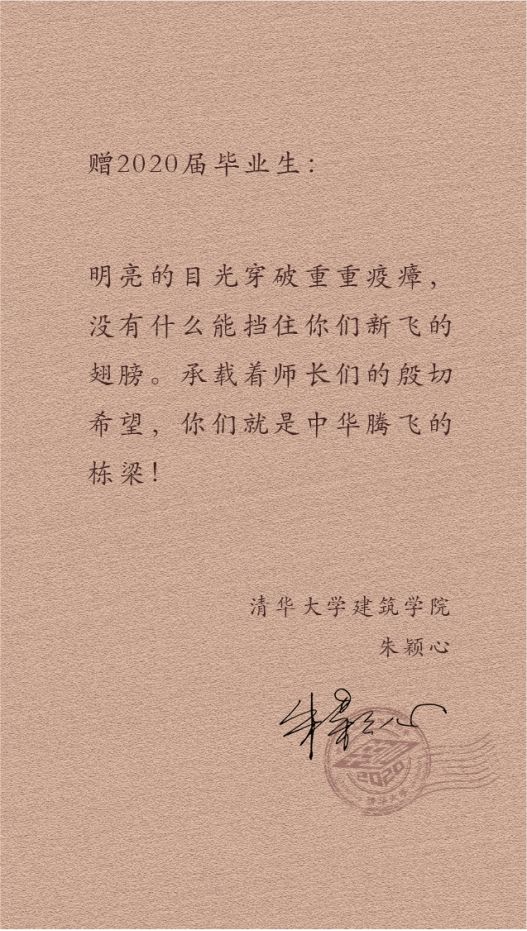 赠2020届毕业生：
明亮的目光穿破重重疫瘴，
没有什么能挡住你们新飞的
翅膀。承载着师长们的殷切
希望，你们就是中华腾飞的
栋梁！
清华大学建筑学院
朱颖心
朱颖心
2020
清华大学